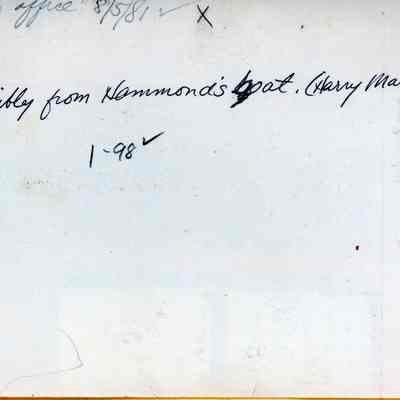 office 8/5/81 ✓ X
ibly from Hammond's boat. (Harry Ma
1-98 ✓